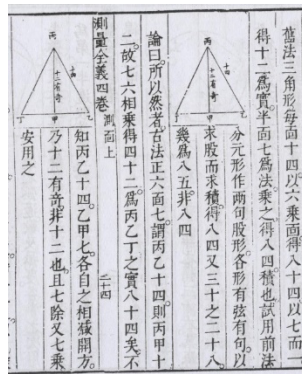 舊法三角形每面十四以六乘面得八十四以七而一
得十二爲實半面七爲法乘之得八四積也試用前法
丙
十四
十二有奇
甲
丁
分元形作兩句股形各形有弦有句以
求股而求積得八四又三十之二十八
幾爲八五非八四
論曰所以然者古法正六面七謂丙乙十四則丙甲十
二故七六相乘得四十二爲丙乙丁之實八十四矣不
測量全義四卷
測面上
二十四
丙
十四
十二有奇
甲
丁
知丙乙十四乙甲七各自之相減開方
乃十二有奇非十二也且七除又七乘
安用之